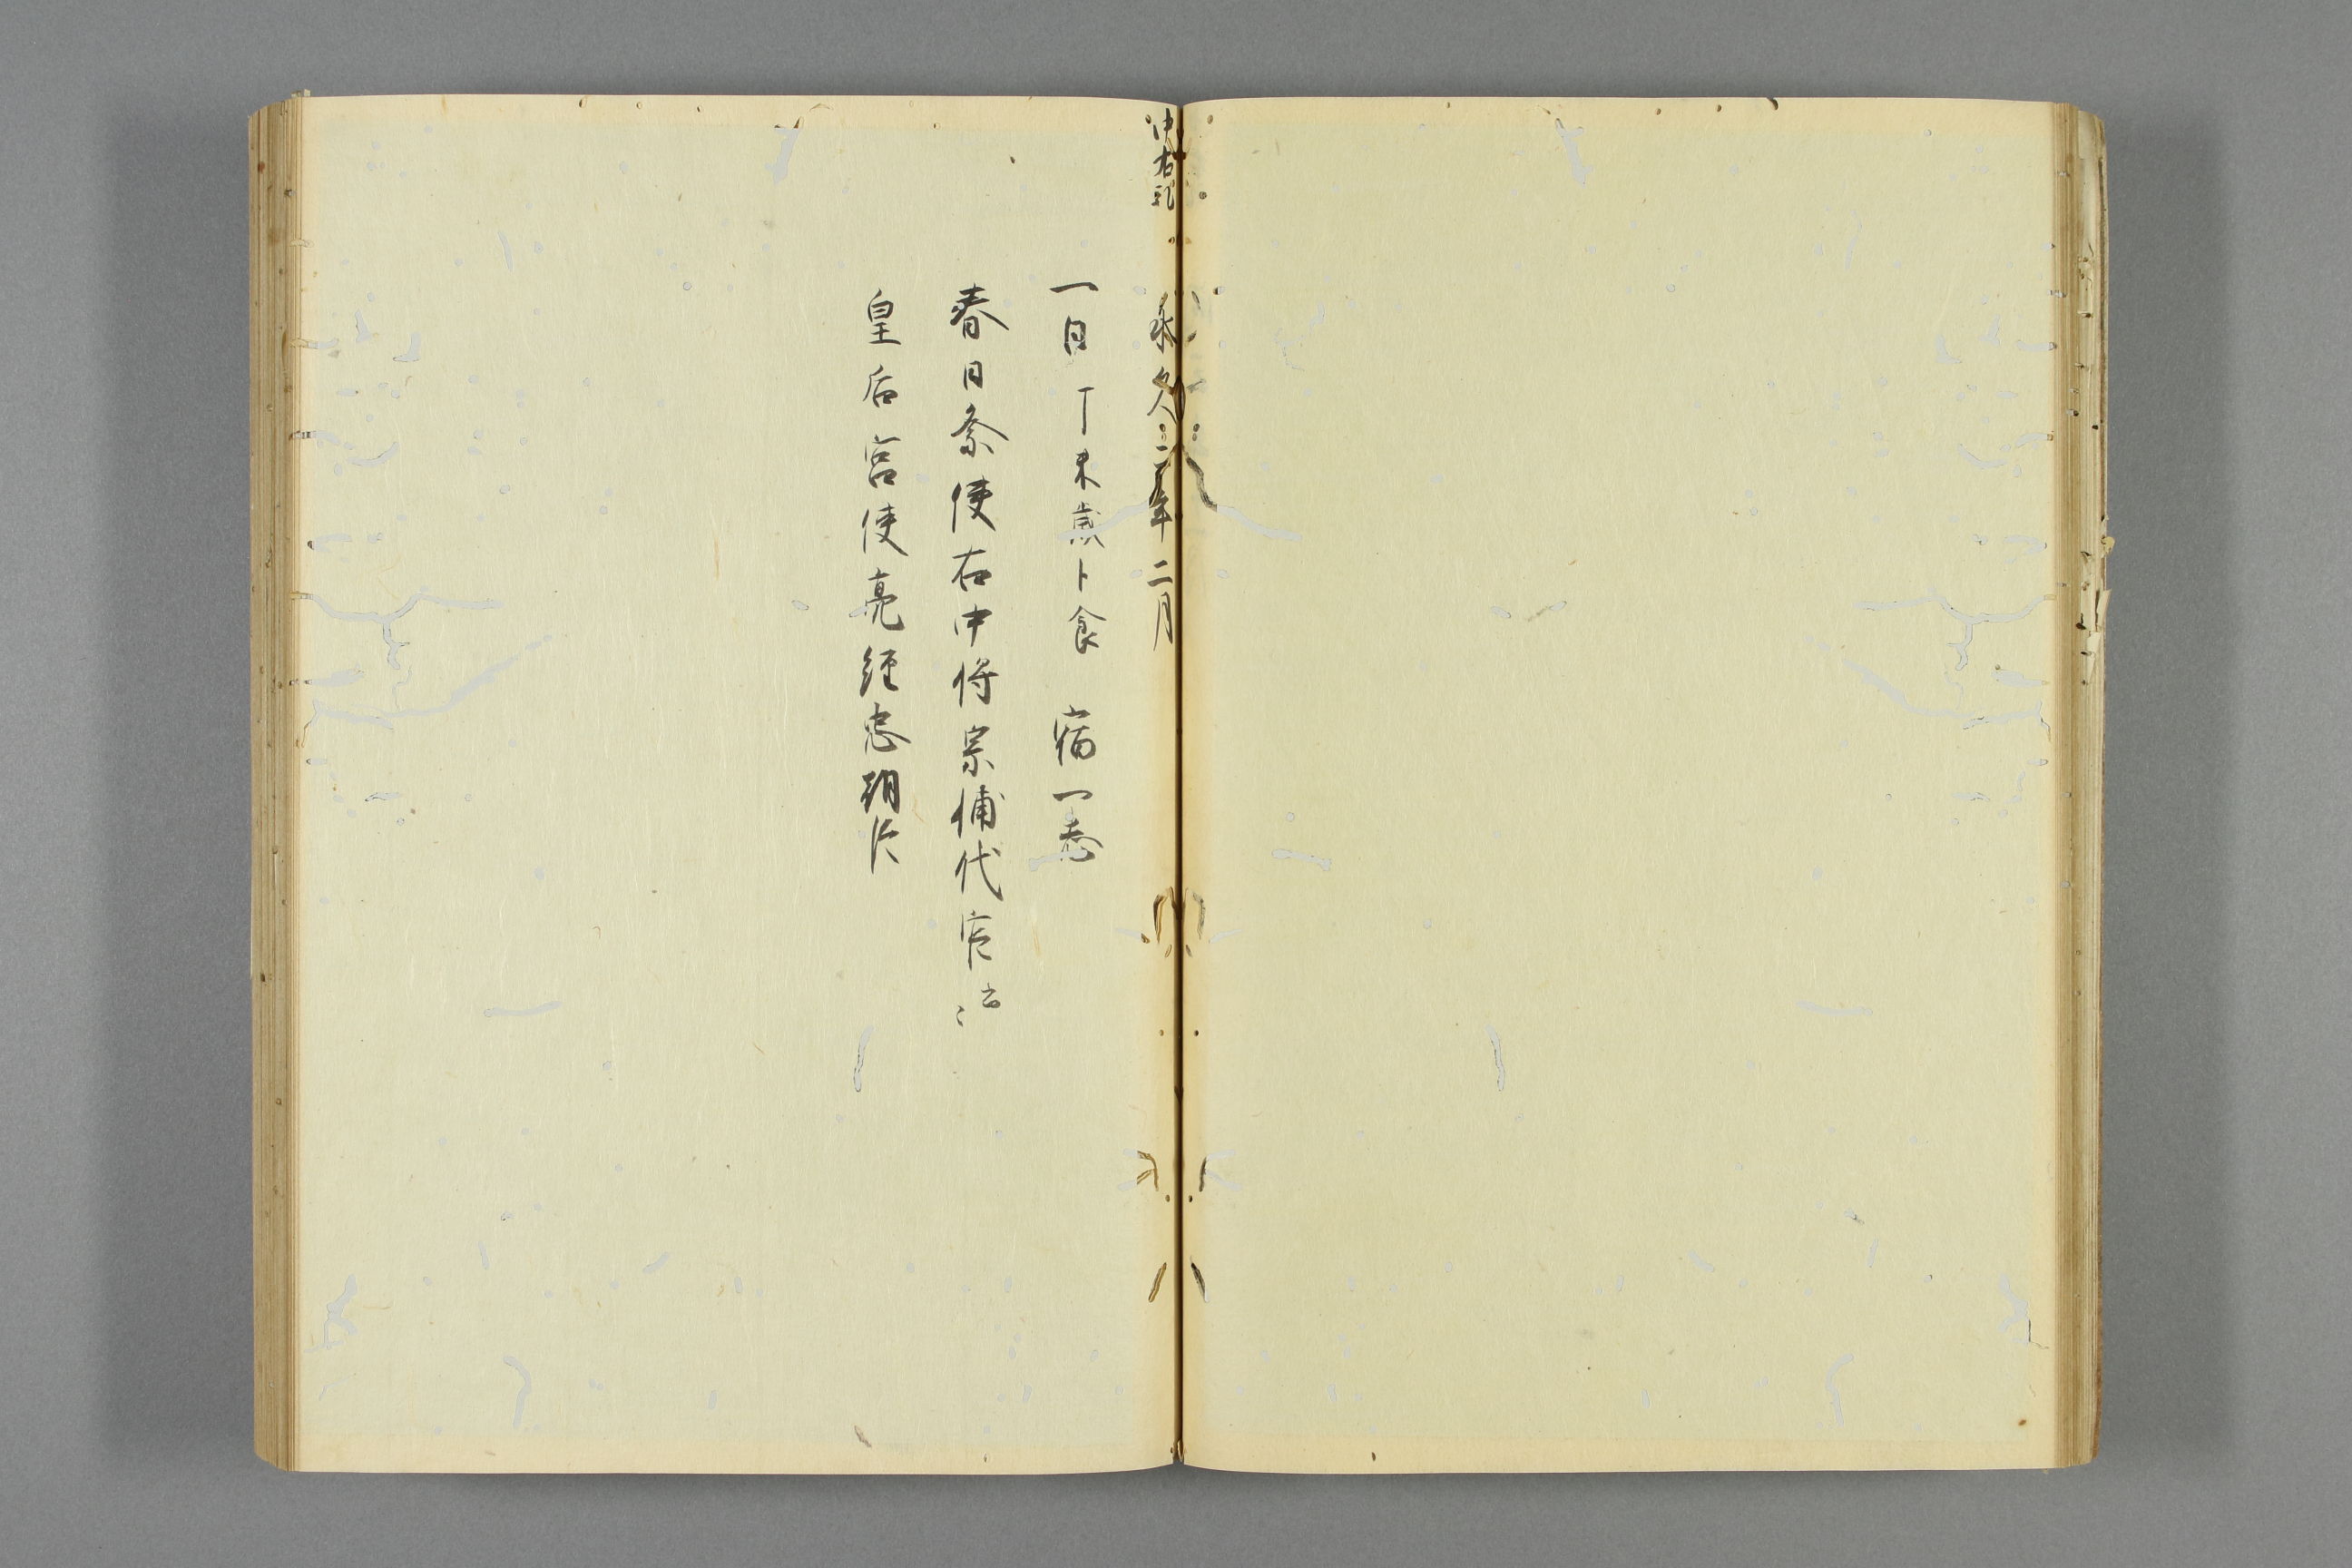 中右記
永久二年二月
一日丁未歳卜食 宿一
春日祭使右中将宗輔代官云々
皇后宮使亮経忠朝臣